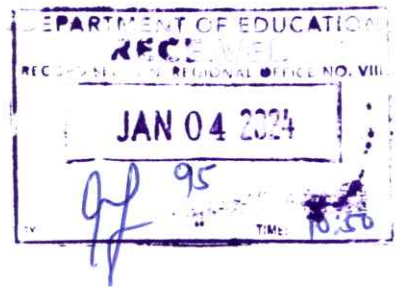 DEPARTMENT OF EDUCATION
RECEIVED
RECORDS SECTION, REGIONAL OFFICE NO. VIII
JAN 04 2024
95
BY TIME: 10:50